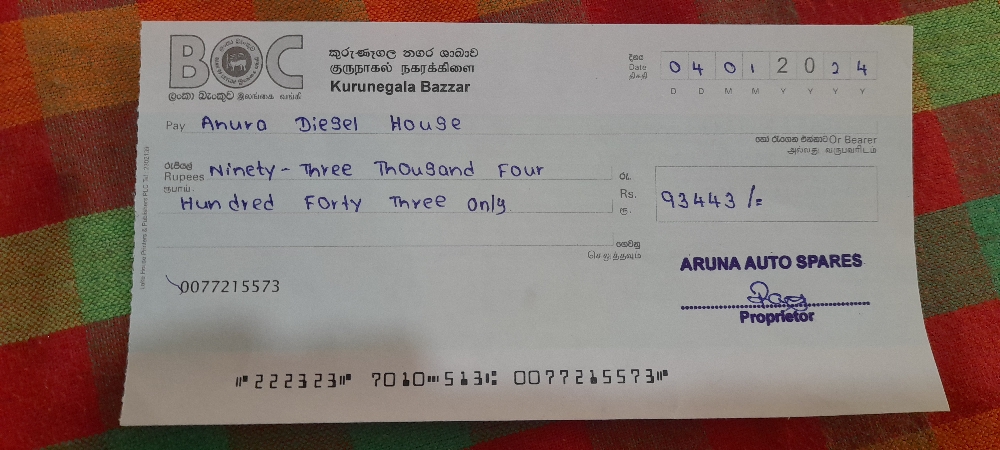 BOC
ලංකා බැංකුව இலங்கை வங்கி
කුරුණෑගල නගර ශාඛාව
குருநாகல் நகரக்கிளை
Kurunegala Bazzar
දිනය
Date
திகதி
0 4 0 1 2 0 2 4
D D M M Y Y Y Y
Pay Anura Diesel House
හෝ රැගෙන එන්නාට Or Bearer
அல்லது வருபவரிடம்
රුපියල්
Rupees Ninety-Three Thousand Four
ரூபாய்
Hundred Forty Three Only
රු.
Rs. 93443/=
ரூ.
ගෙවනු
செலுத்தவும்
ARUNA AUTO SPARES
Proprietor
0077215573
⑈222323⑈ 7010⑉513⑆ 0077215573⑈